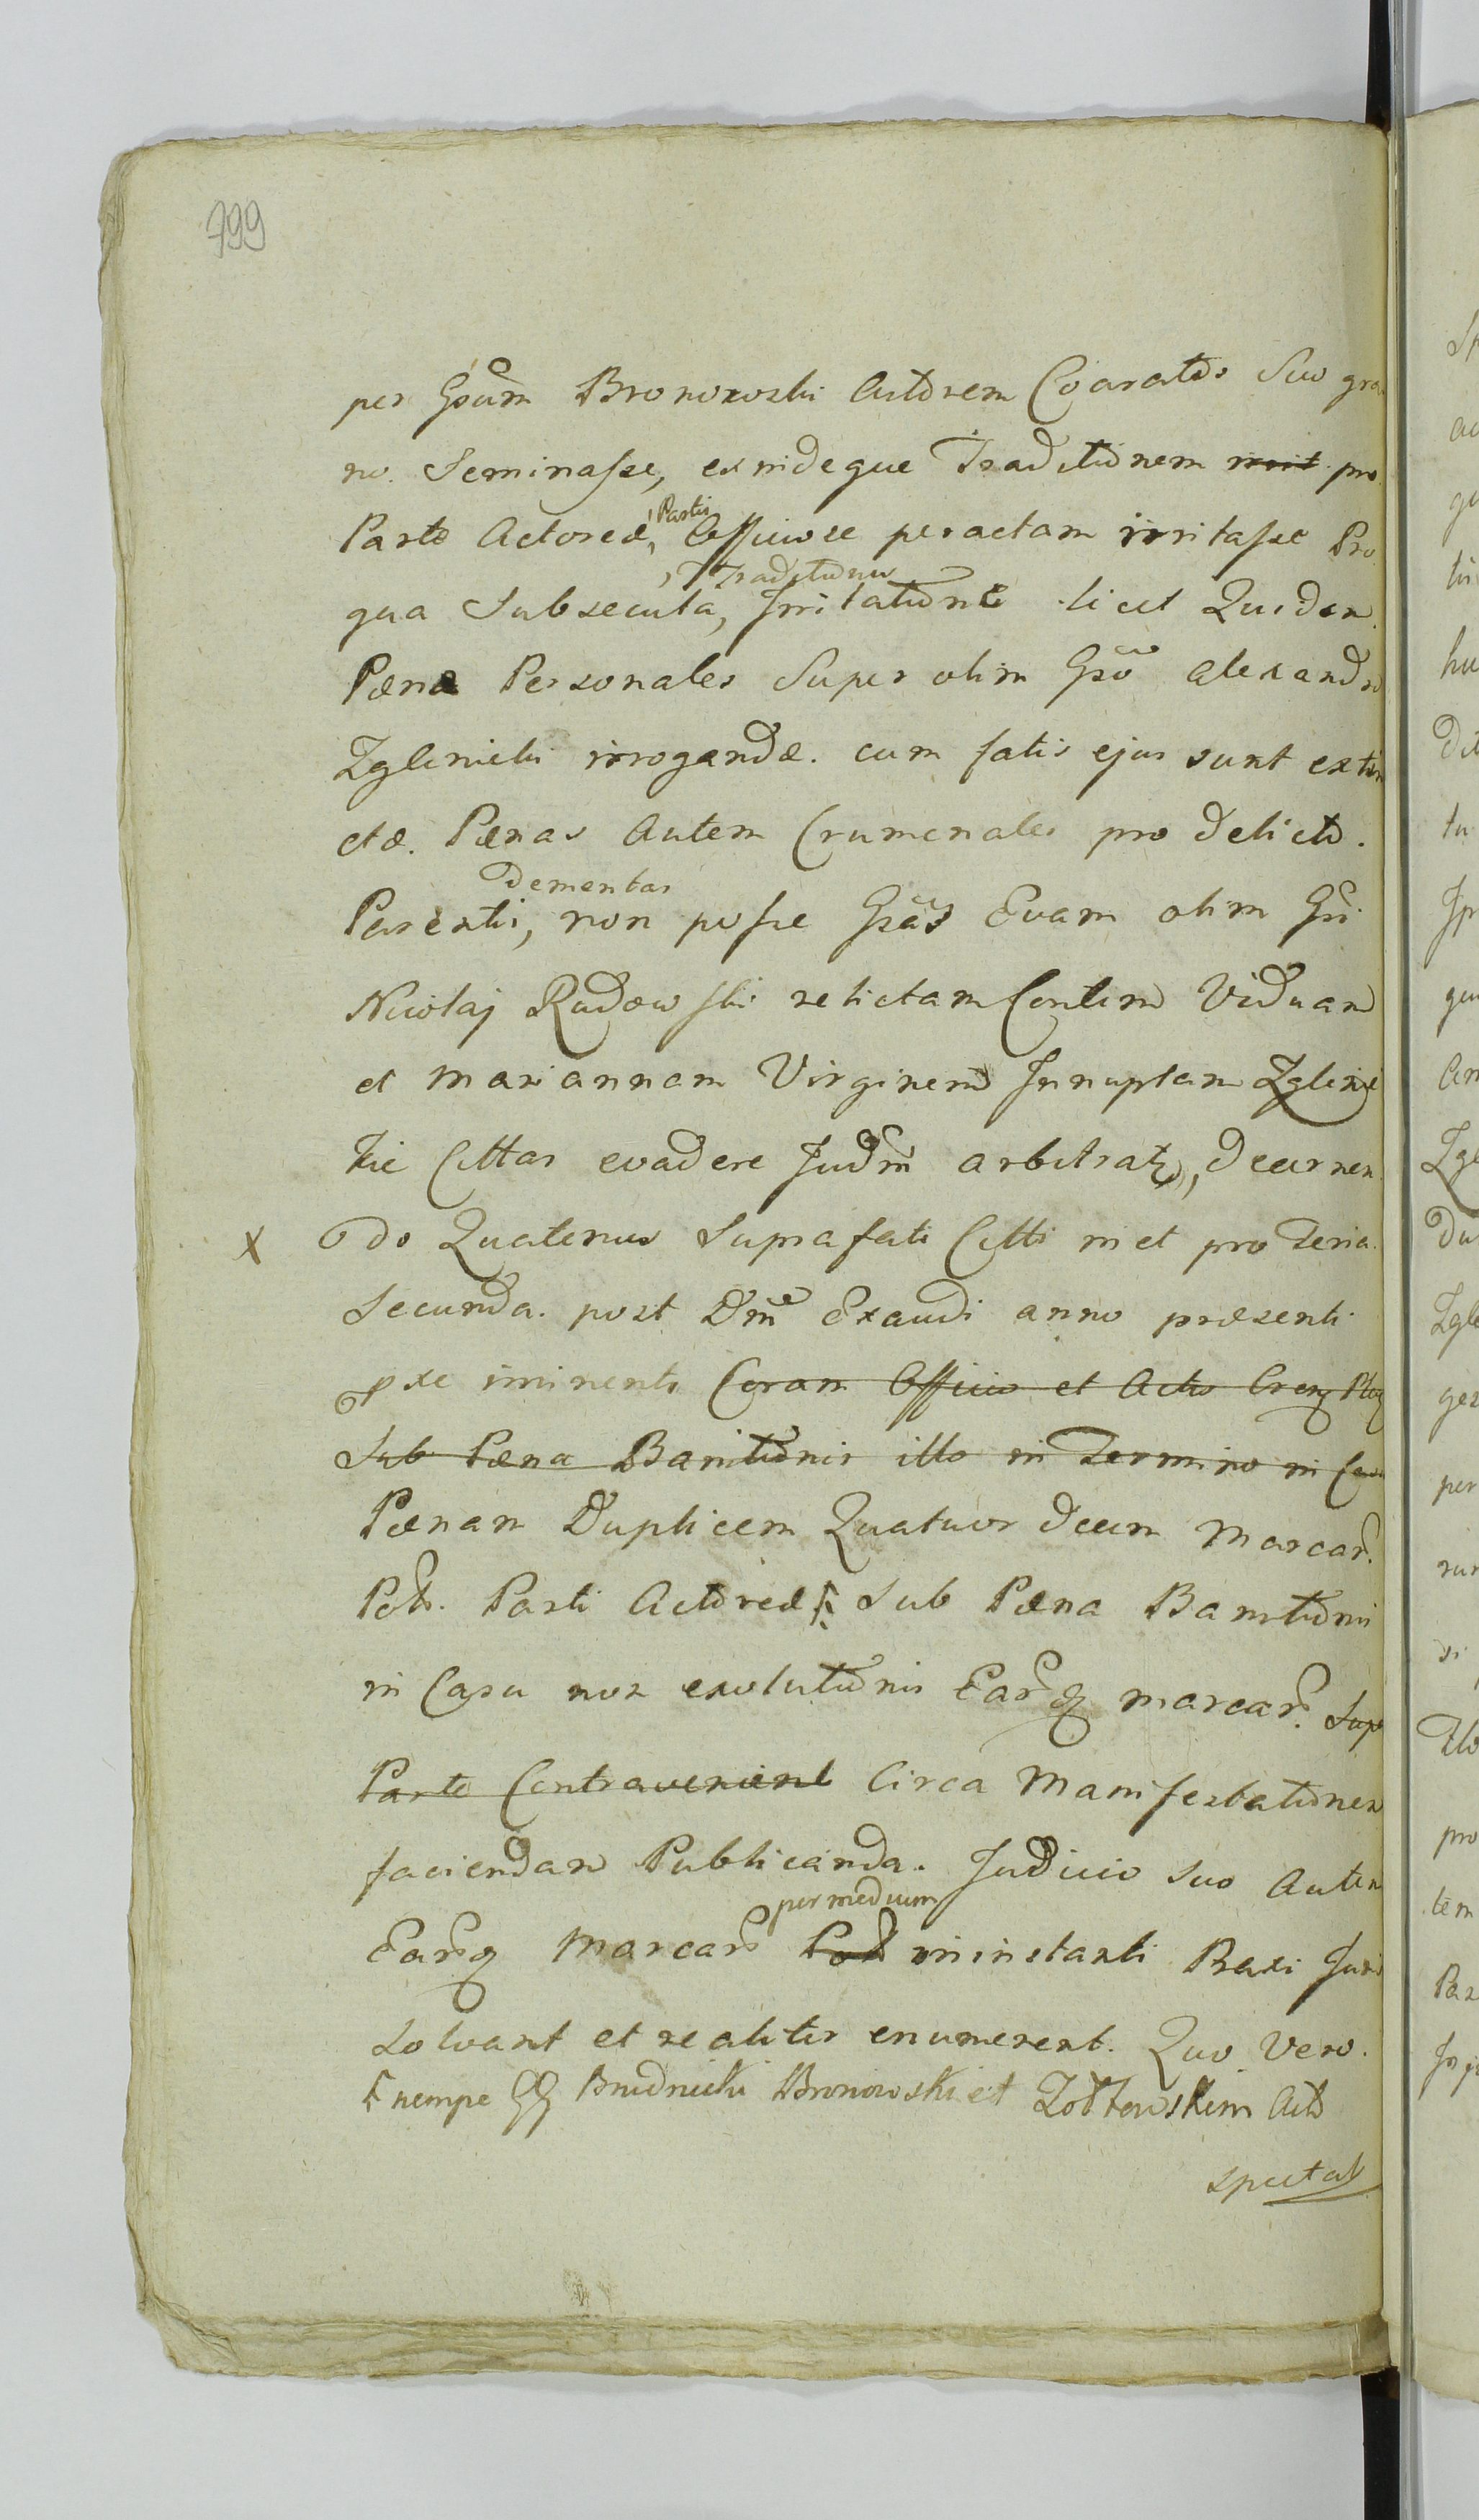 799
per Gsum Bronowski Actorem Coaratos Suo gra
no Seminasse, exindeque Traditionem irrit pro
Parte Actorea, Partis Officiose peractam irritasse Pro
qua Subsecuta, Traditionis Irritatione licet Quidem
Pænæ Personales Super olim Gso Alexandro
Zglinicki irrogandæ. cum fatis ejus sunt extin
ctæ. Pænas Autem Crumenales pro delicto.
dementas
Parentis, non posse Gsas Evam olim Gsi
Nicolaj Rudowski relictam Contem Viduam
et Mariannam Virginem Innuptam Zglinic
kie Cittas evadere Judm arbitratz, decernen
X do Quatenus Suprafati Citti in et pro Feria
Secunda. post Dnm Exaudi anno præsenti
pxe iminenti Coram Officio et Actis Crens Ploc
Sub Pæna Banitionis illo in Termino in
Pænam Duplicem Quatuor decem Marcar.
Pol. Parti Actoreæ Sub Pæna Banitionis
in Casu non exolutionis Earq marcar. Sup
Parte Contravenient Circa Manifestationem
faciendam Publicanda. Judicio suo Autem
per medium
Earq Marcar Pol in instanti Baxi Juri
Solvant et realiter enumerent. Quo Vero.
nempe GG Brudnicki Bronowski et Zołtowskim Acto
spectat